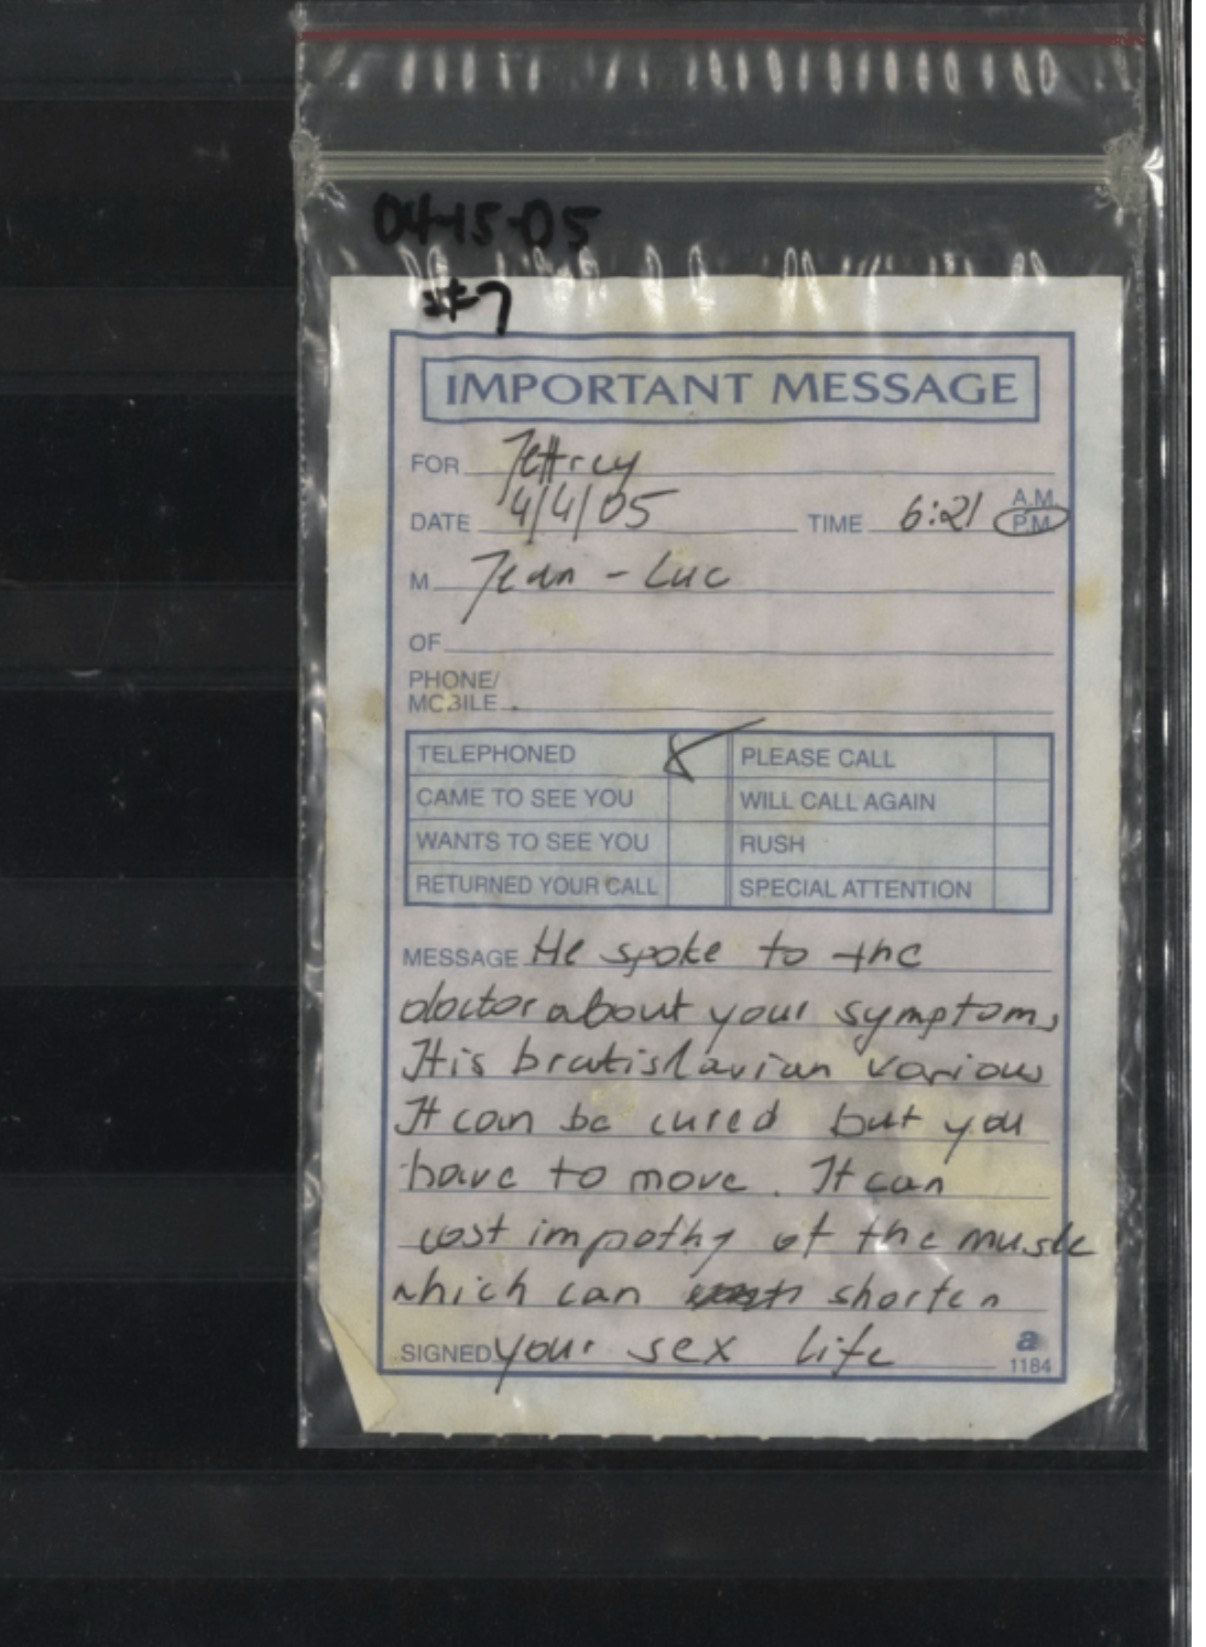 04-15-05
#7
IMPORTANT MESSAGE
FOR Jeffrey
A.M.
DATE 4/4/05 TIME 6:21 P.M.
M Jean - Luc
OF
PHONE/
MOBILE
TELEPHONED PLEASE CALL
CAME TO SEE YOU WILL CALL AGAIN
WANTS TO SEE YOU RUSH
RETURNED YOUR CALL SPECIAL ATTENTION
MESSAGE He spoke to the
doctor about your symptoms
It is bratislavian various
It can be cured but you
have to move. It can
cost impathy of the muscle
which can shorten
SIGNED your sex life
a
1184